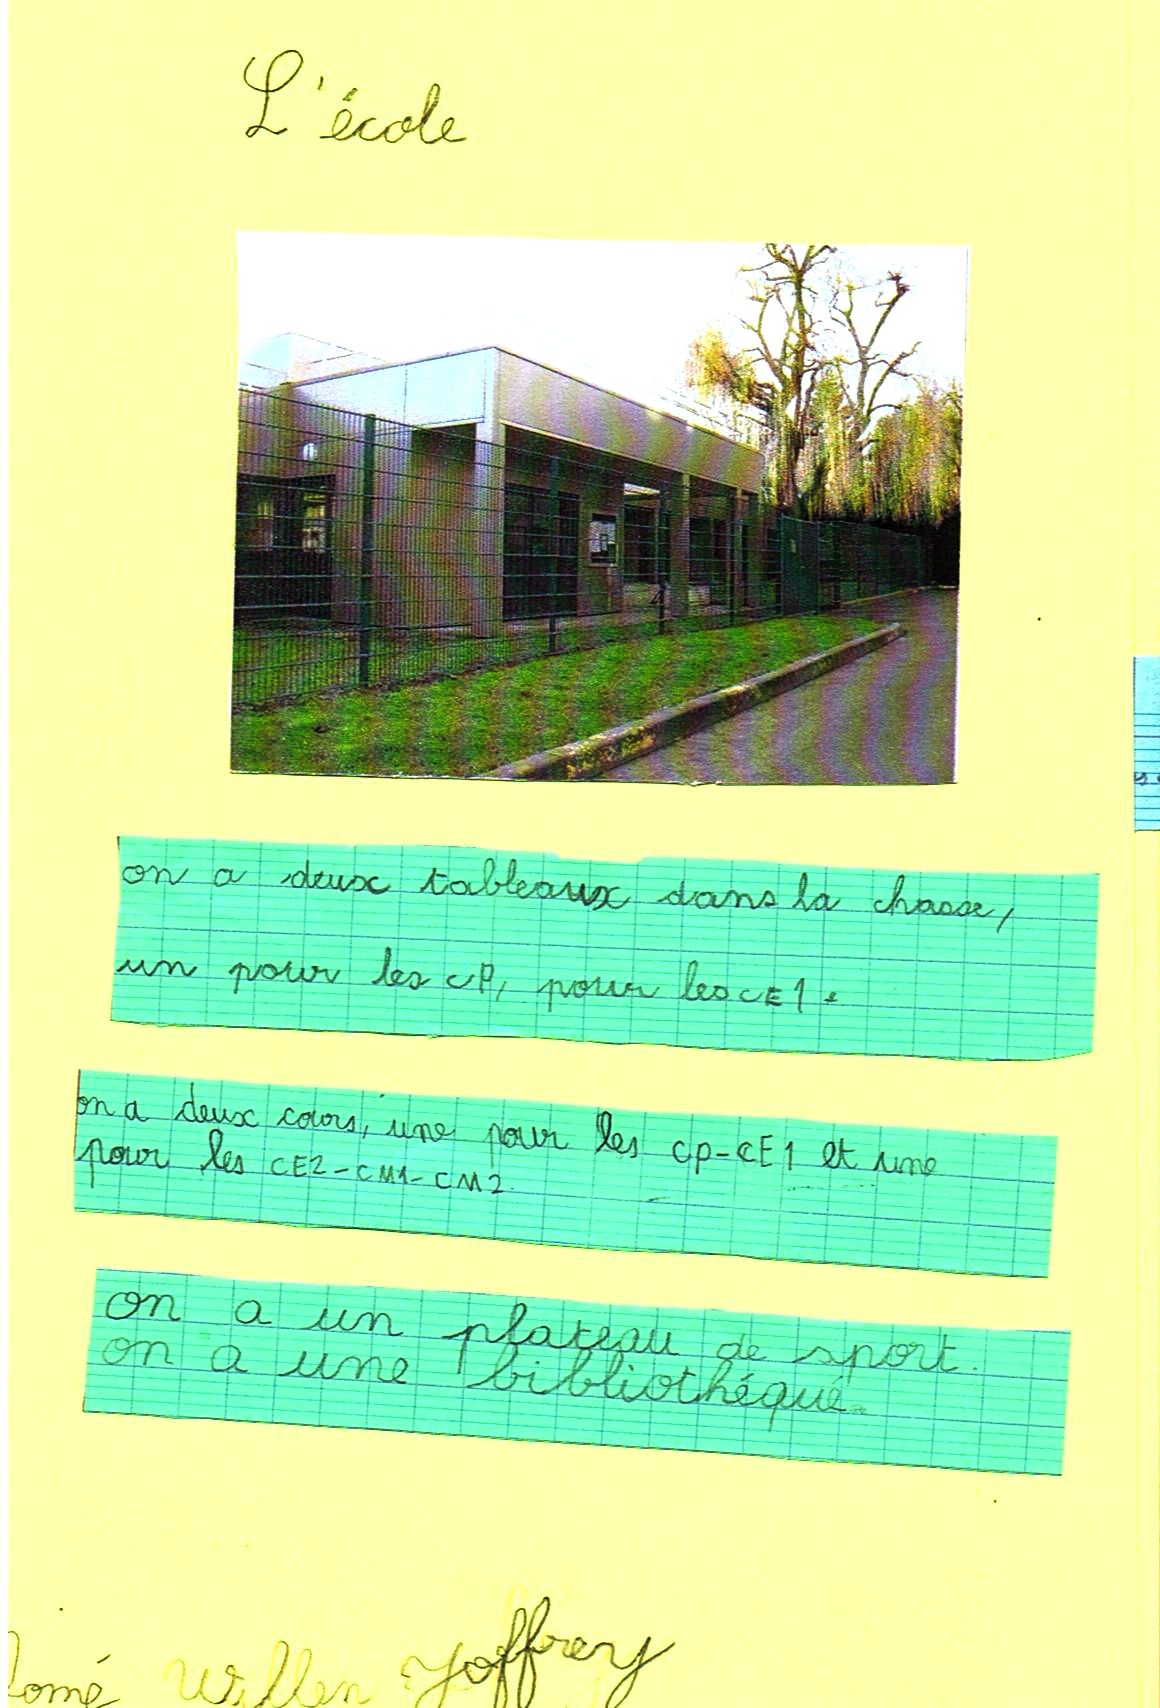 L'école
on a deux tableaux dans la chasse,
un pour les CP, pour les CE1.
on a deux cours, une pour les CP-CE1 et une
pour les CE2-CM1-CM2.
on a un plateau de sport.
on a une bibliothéque.
Joffrey